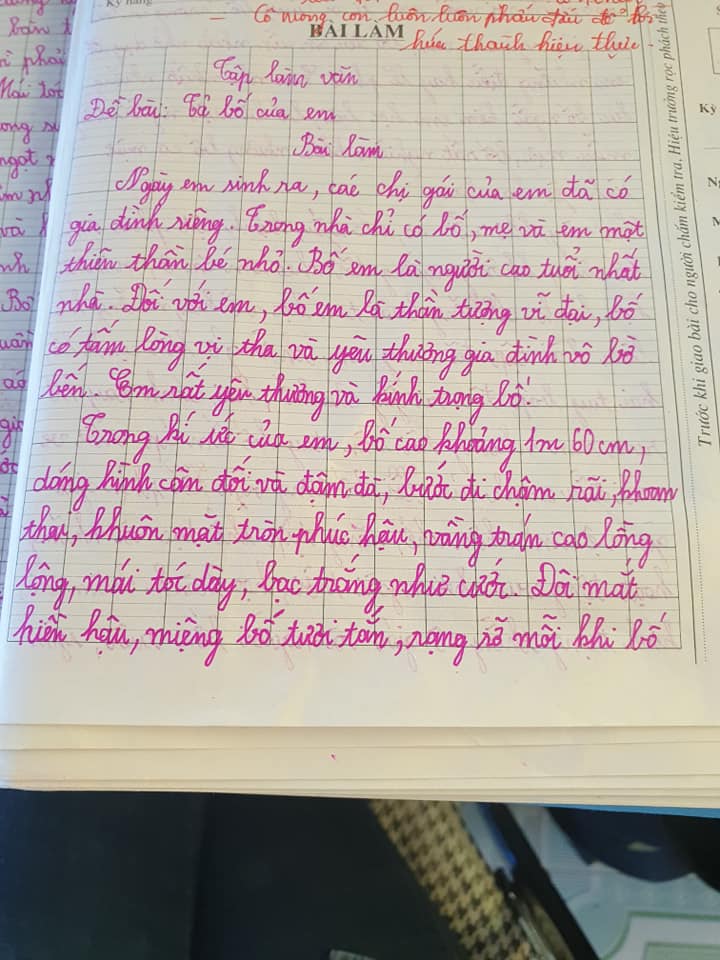 Kỹ năng
Cô mong con luôn luôn phấn đấu để
BÀI LÀM
thành hiện thực.
Tập làm văn
Đề bài: Tả bố của em
Bài làm
Ngày em sinh ra, các chị gái của em đã có
gia đình riêng. Trong nhà chỉ có bố, mẹ và em một
thiên thần bé nhỏ. Bố em là người cao tuổi nhất
nhà. Đối với em, bố em là thần tượng vĩ đại, bố
có tấm lòng vị tha và yêu thương gia đình vô bờ
bến. Em rất yêu thương và kính trọng bố.
Trong kí ức của em, bố cao khoảng 1m 60cm,
dáng hình cân đối và đậm đà, bước đi chậm rãi, khoan
thai, khuôn mặt tròn phúc hậu, vầng trán cao lồng
lộng, mái tóc dày, bạc trắng như cước. Đôi mắt
hiền hậu, miệng bố tươi tắn, rạng rỡ mỗi khi bố
Trước khi giao bài cho người chấm kiểm tra. Hiệu trưởng rọc phách theo
Kỳ